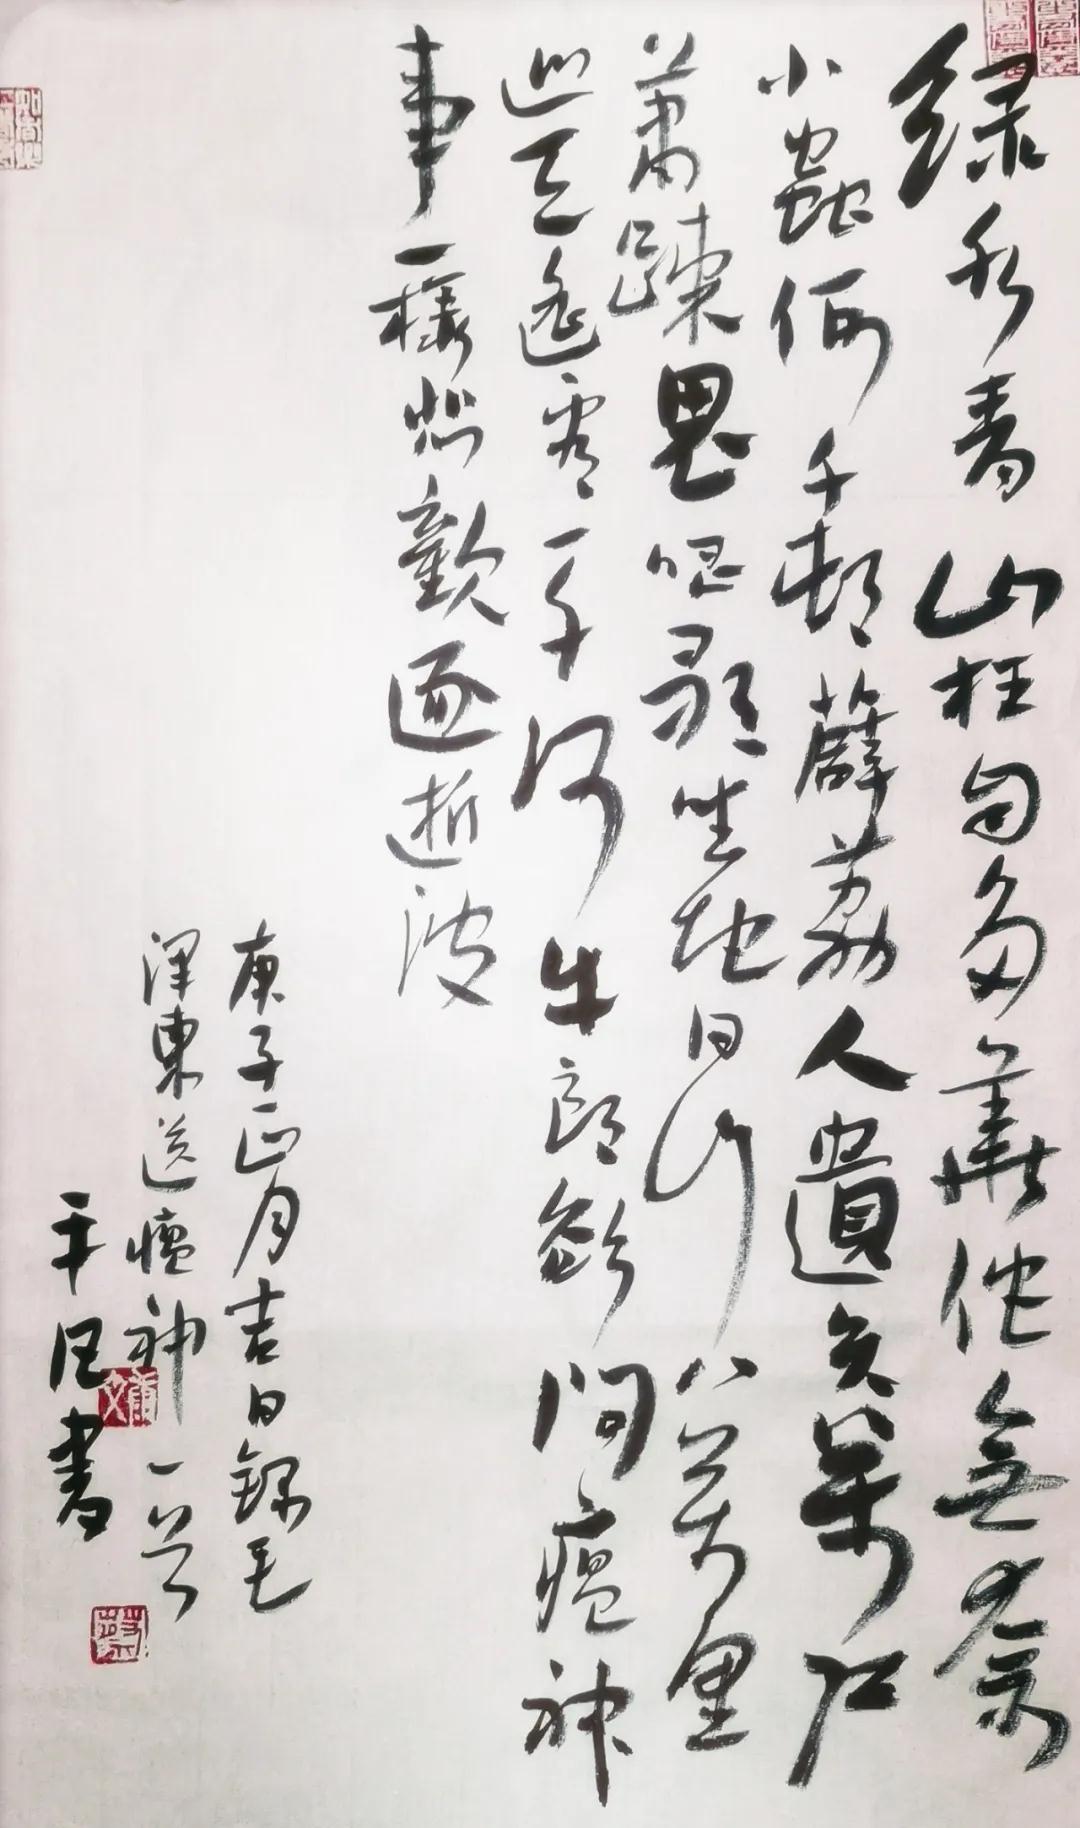 绿水青山枉自多華佗無奈
小蟲何千邨薜荔人遺矢萬户
蕭踈鬼唱歌坐地日行八萬里
巡天遙看一千河牛郎欲問瘟神
事一樣悲歡逐逝波
庚子正月吉日録毛
澤東送瘟神一首
書